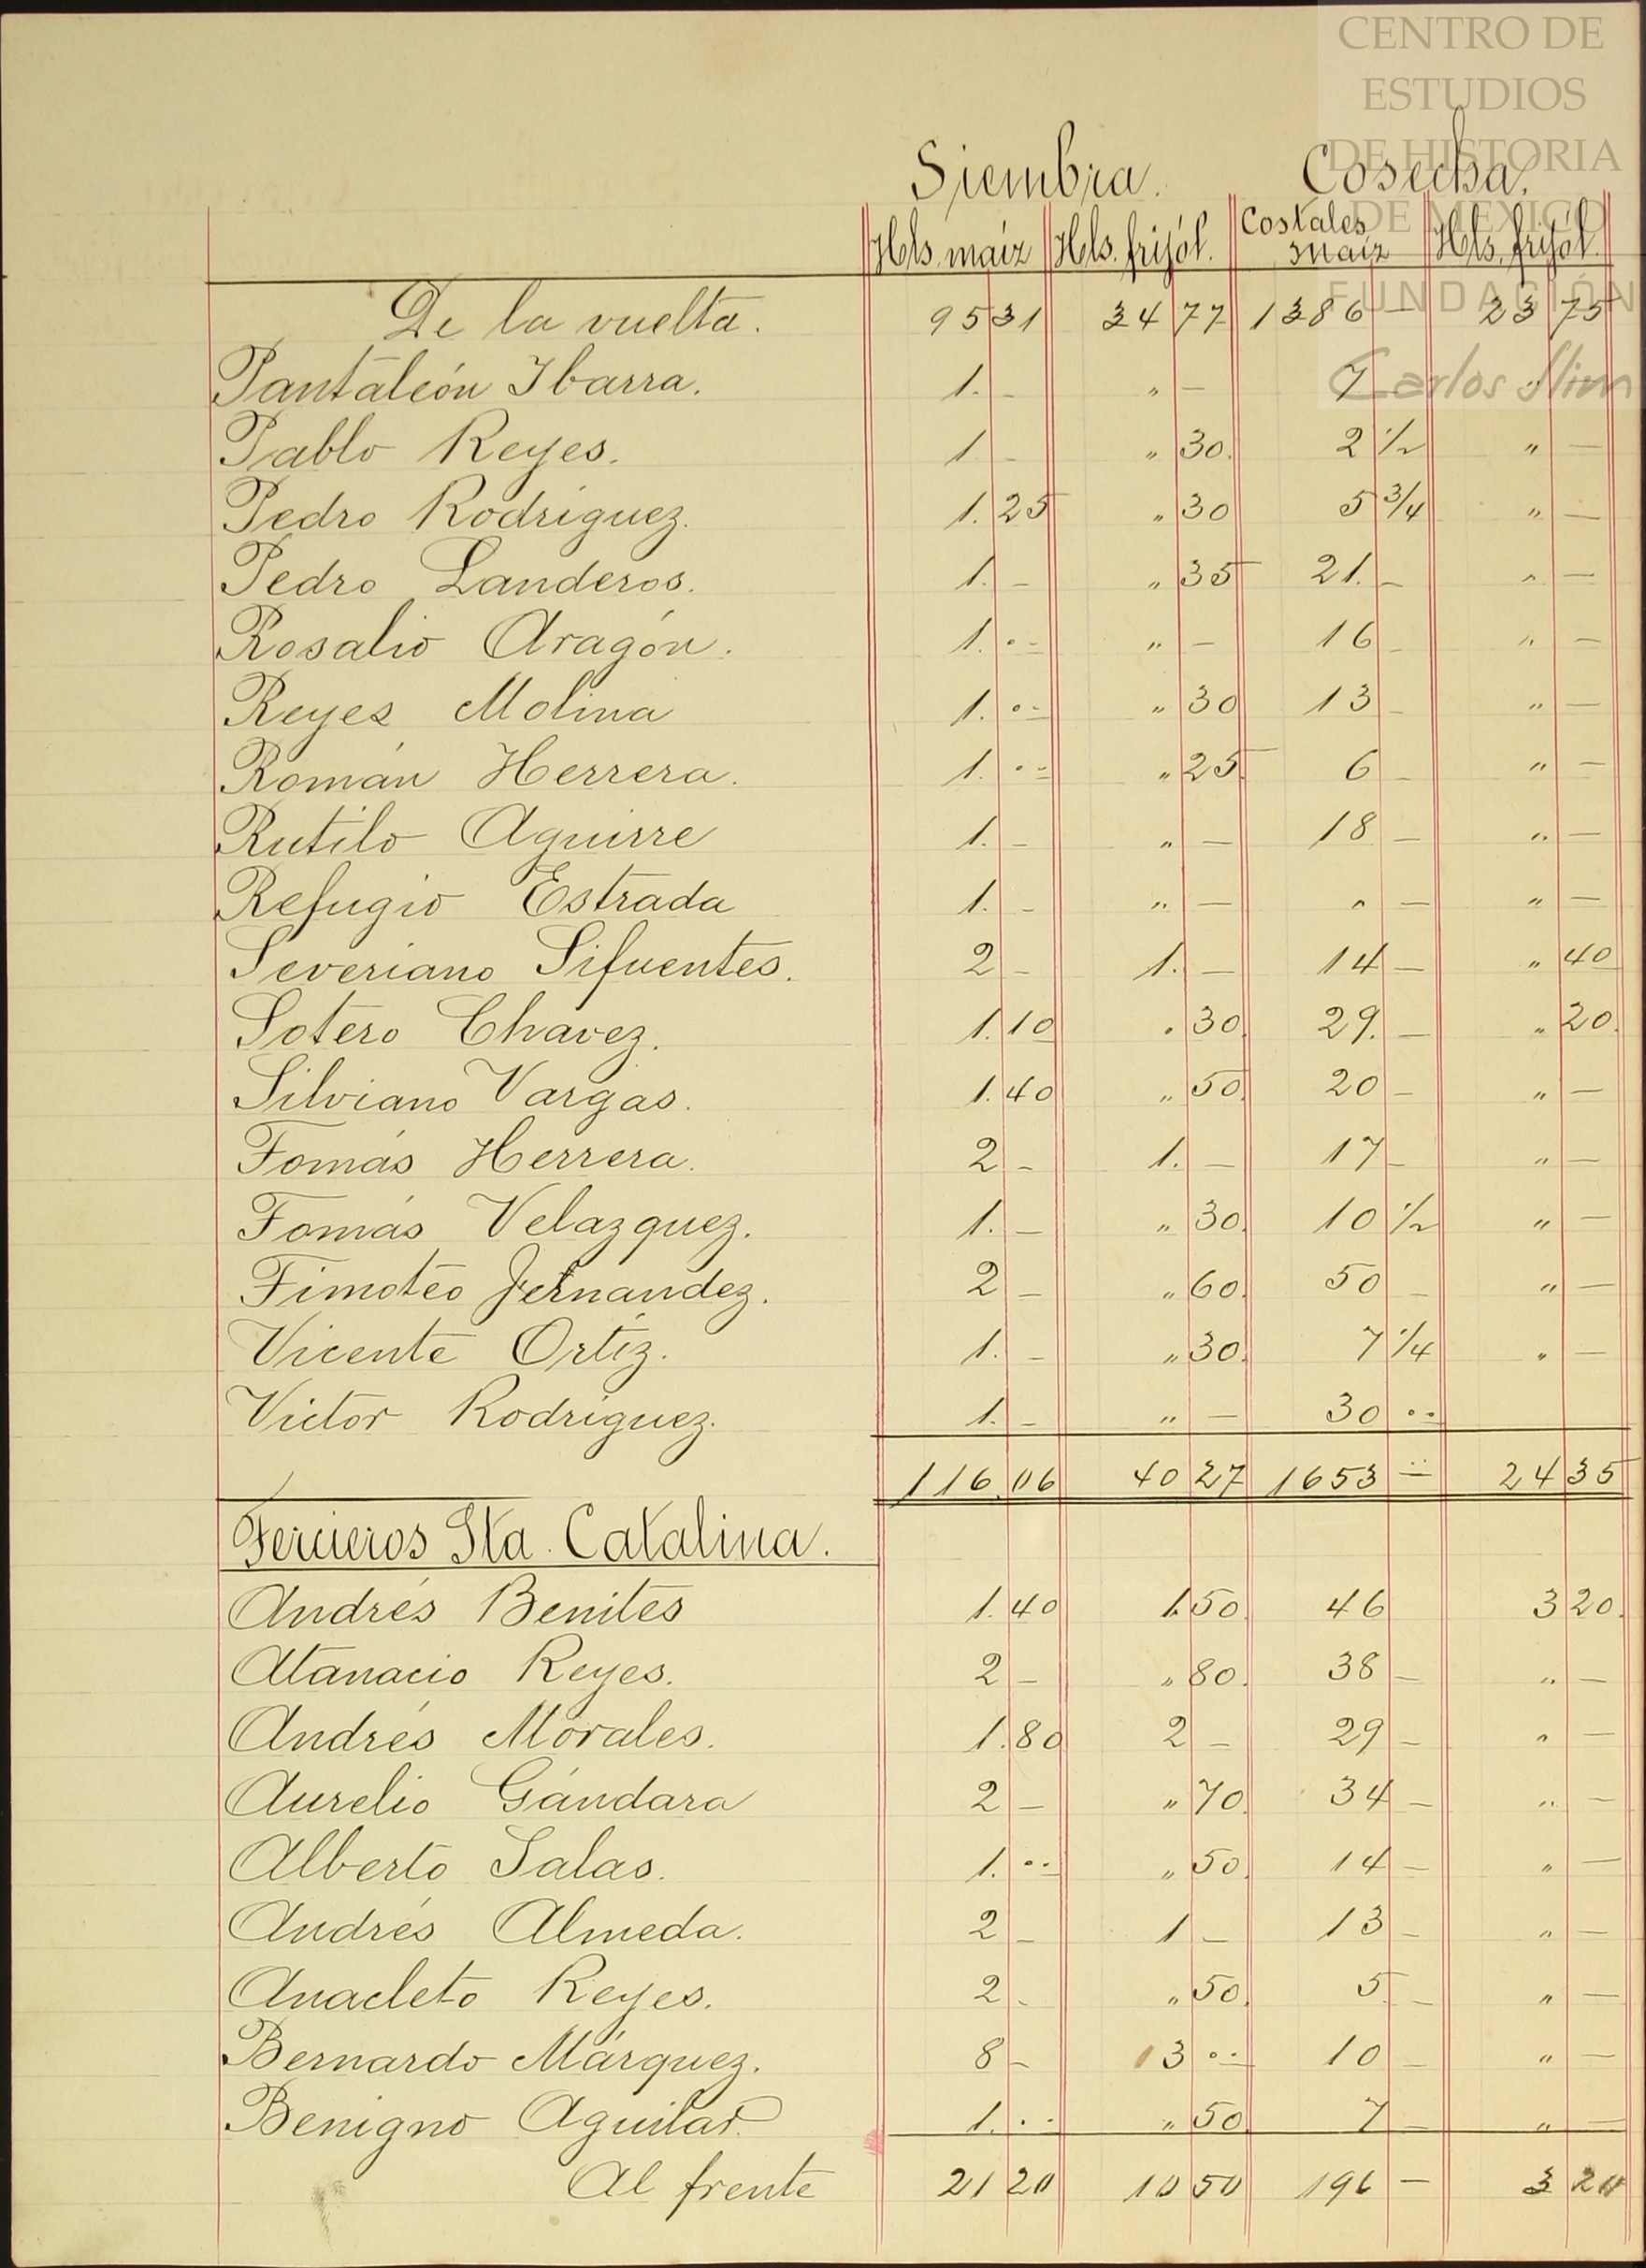 CENTRO DE
ESTUDIOS
DE HISTORIA
DE MÉXICO
FUNDACIÓN
Carlos Slim
Siembra. Cosecha.
Hls. maíz Hls. frijól. Costales maíz Hls. frijól.
De la vuelta. 95 31 34 77 1386 — 23 75
Pantaleón Ibarra. 1. - " — 7
Pablo Reyes. 1 - " 30. 2 1/2 " —
Pedro Rodríguez. 1. 25 " 30 5 3/4 " —
Pedro Landeros. 1. - " 35 21. - " —
Rosalio Aragón. 1. .. " - 16 - " —
Reyes Molina 1. .. " 30 13 - " —
Román Herrera. 1. .. " 25 6 - " —
Rutilo Aguirre 1. - " — 18 — " —
Refugio Estrada 1. - " — " — " —
Severiano Sifuentes. 2 - 1. — 14 — " 40
Sotero Chavez. 1. 10 " 30. 29. — " 20.
Silviano Vargas. 1. 40 " 50. 20 - " —
Tomás Herrera. 2 - 1. — 17 - " —
Tomás Velazquez. 1. — " 30. 10 1/2 " —
Timoteo Fernandez. 2 — " 60. 50 - " —
Vicente Ortíz. 1. - " 30. 7 1/4 " —
Victor Rodríguez. 1. - " — 30 ..
116. 06 40 27 1653 .. 24 35
Tercieros Sta. Catalina.
Andrés Benites 1. 40 1. 50. 46 3 20.
Atanacio Reyes. 2 — " 80. 38 — " —
Andrés Morales. 1. 80 2 — 29 — " —
Aurelio Gándara 2 — " 70. 34 — " —
Alberto Salas. 1. .. " 50. 14 — " —
Andrés Almeda. 2 - 1 - 13 - " —
Anacleto Reyes. 2 - " 50. 5 - " —
Bernardo Márquez. 8 - 3 .. 10 - " —
Benigno Aguilar. 1. .. " 50 7 — " —
Al frente 21 20 10 50 196 — 3 20